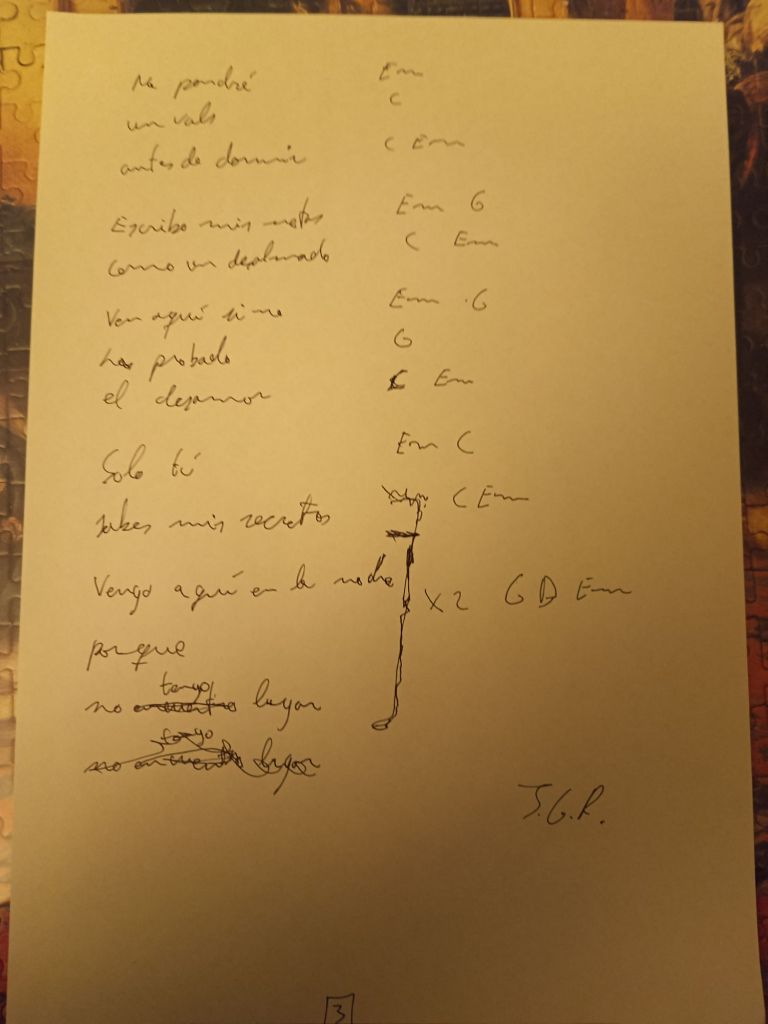 Me pondré Em
un vals C
antes de dormir C Em
Escribo mis notas Em G
como un desalmado C Em
Ven aquí si no Em G
has probado G
el desamor C Em
Solo tú Em C
sabes mis secretos C Em
Vengo aquí en la noche x2 G D Em
porque
no tengo lugar
J.G.R.
3